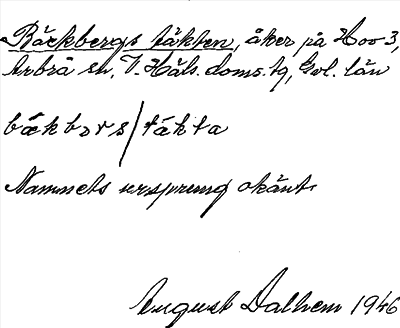 Bäckbergs täkten, åker på Hov 3,
Arbrå sn, V. Häls. doms. tg, Gvl. län
bækbɔrs/tákta
Namnets ursprung okänt.
August Dalhem 1946